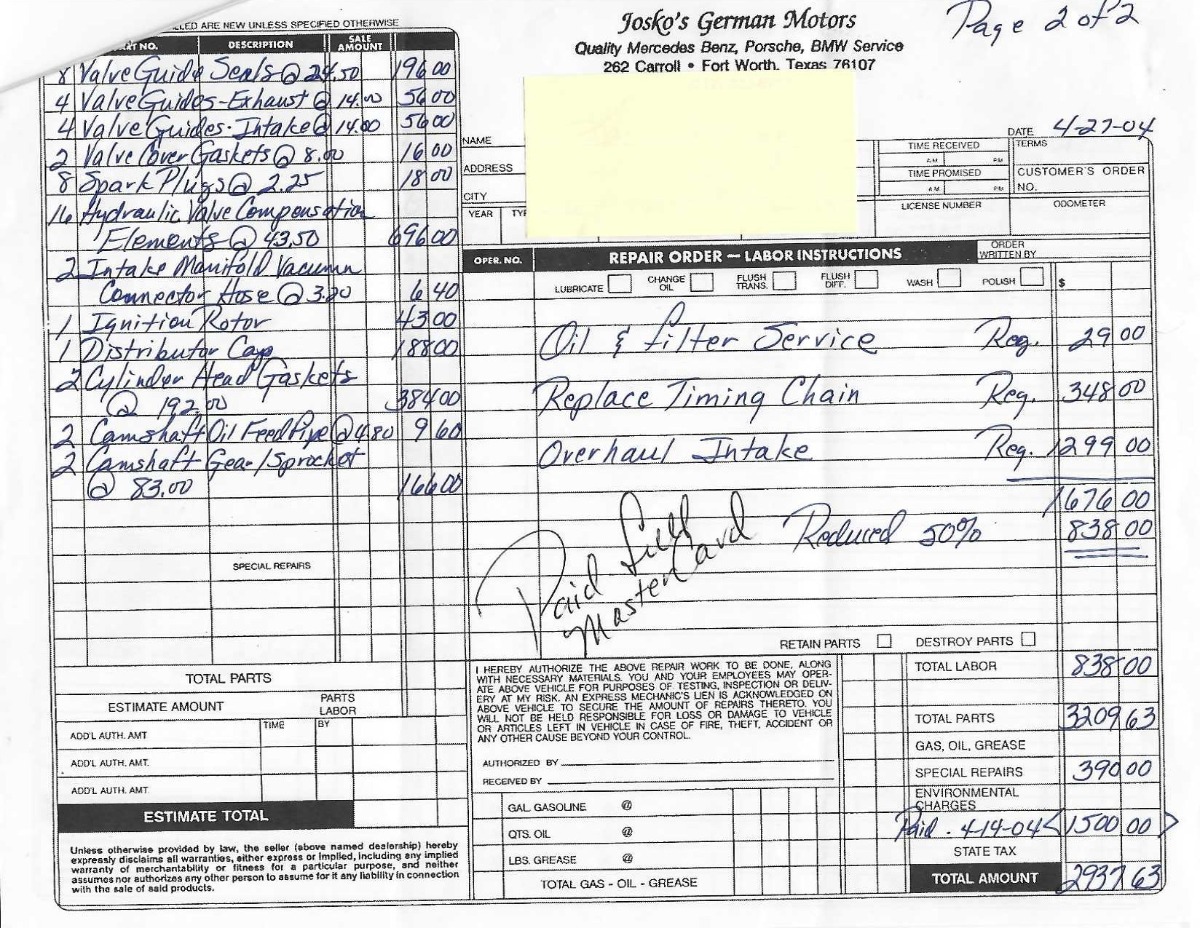 Josko's German Motors
Quality Mercedes Benz, Porsche, BMW Service
262 Carroll • Fort Worth, Texas 76107
Page 2 of 2
ARE NEW UNLESS SPECIFIED OTHERWISE
NO. DESCRIPTION SALE AMOUNT
8 Valve Guide Seals @ 24.50 196 00
4 Valve Guides-Exhaust @ 14.00 56 00
4 Valve Guides-Intake @ 14.00 56 00
2 Valve Cover Gaskets @ 8.00 16 00
8 Spark Plugs @ 2.25 18 00
16 Hydraulic Valve Compensation
Elements @ 43.50 696 00
2 Intake Manifold Vacumn
Connector Hose @ 3.20 6 40
1 Ignition Rotor 43 00
1 Distributor Cap 188 00
2 Cylinder Head Gaskets
@ 192.00 384 00
2 Camshaft Oil Feed Pipe @ 4.80 9 60
2 Camshaft Gear/Sprocket
@ 83.00 166 00
SPECIAL REPAIRS
TOTAL PARTS
ESTIMATE AMOUNT PARTS
LABOR
TIME BY
ADD'L AUTH. AMT
ADD'L AUTH. AMT.
ADD'L AUTH. AMT.
ESTIMATE TOTAL
Unless otherwise provided by law, the seller (above named dealership) hereby
expressly disclaims all warranties, either express or implied, including any implied
warranty of merchantability or fitness for a particular purpose, and neither
assumes nor authorizes any other person to assume for it any liability in connection
with the sale of said products.
DATE 4-27-04
NAME TIME RECEIVED TERMS
A.M. P.M.
ADDRESS TIME PROMISED CUSTOMER'S ORDER
A.M. P.M. NO.
CITY
LICENSE NUMBER ODOMETER
YEAR
OPER. NO. REPAIR ORDER — LABOR INSTRUCTIONS ORDER WRITTEN BY
LUBRICATE CHANGE OIL FLUSH TRANS. FLUSH DIFF. WASH POLISH $
Oil & filter Service Reg. 29 00
Replace Timing Chain Reg. 348 00
Overhaul Intake Reg. 1299 00
1676 00
Reduced 50% 838 00
Paid Full
MasterCard
RETAIN PARTS DESTROY PARTS
I HEREBY AUTHORIZE THE ABOVE REPAIR WORK TO BE DONE, ALONG
WITH NECESSARY MATERIALS. YOU AND YOUR EMPLOYEES MAY OPER-
ATE ABOVE VEHICLE FOR PURPOSES OF TESTING, INSPECTION OR DELIV-
ERY AT MY RISK. AN EXPRESS MECHANIC'S LIEN IS ACKNOWLEDGED ON
ABOVE VEHICLE TO SECURE THE AMOUNT OF REPAIRS THERETO. YOU
WILL NOT BE HELD RESPONSIBLE FOR LOSS OR DAMAGE TO VEHICLE
OR ARTICLES LEFT IN VEHICLE IN CASE OF FIRE, THEFT, ACCIDENT OR
ANY OTHER CAUSE BEYOND YOUR CONTROL.
AUTHORIZED BY
RECEIVED BY
GAL. GASOLINE @
QTS. OIL @
LBS. GREASE @
TOTAL GAS - OIL - GREASE
TOTAL LABOR 838 00
TOTAL PARTS 3209 63
GAS, OIL, GREASE
SPECIAL REPAIRS 390 00
ENVIRONMENTAL
CHARGES
Paid - 4-14-04 <1500 00>
STATE TAX
TOTAL AMOUNT 2937 63